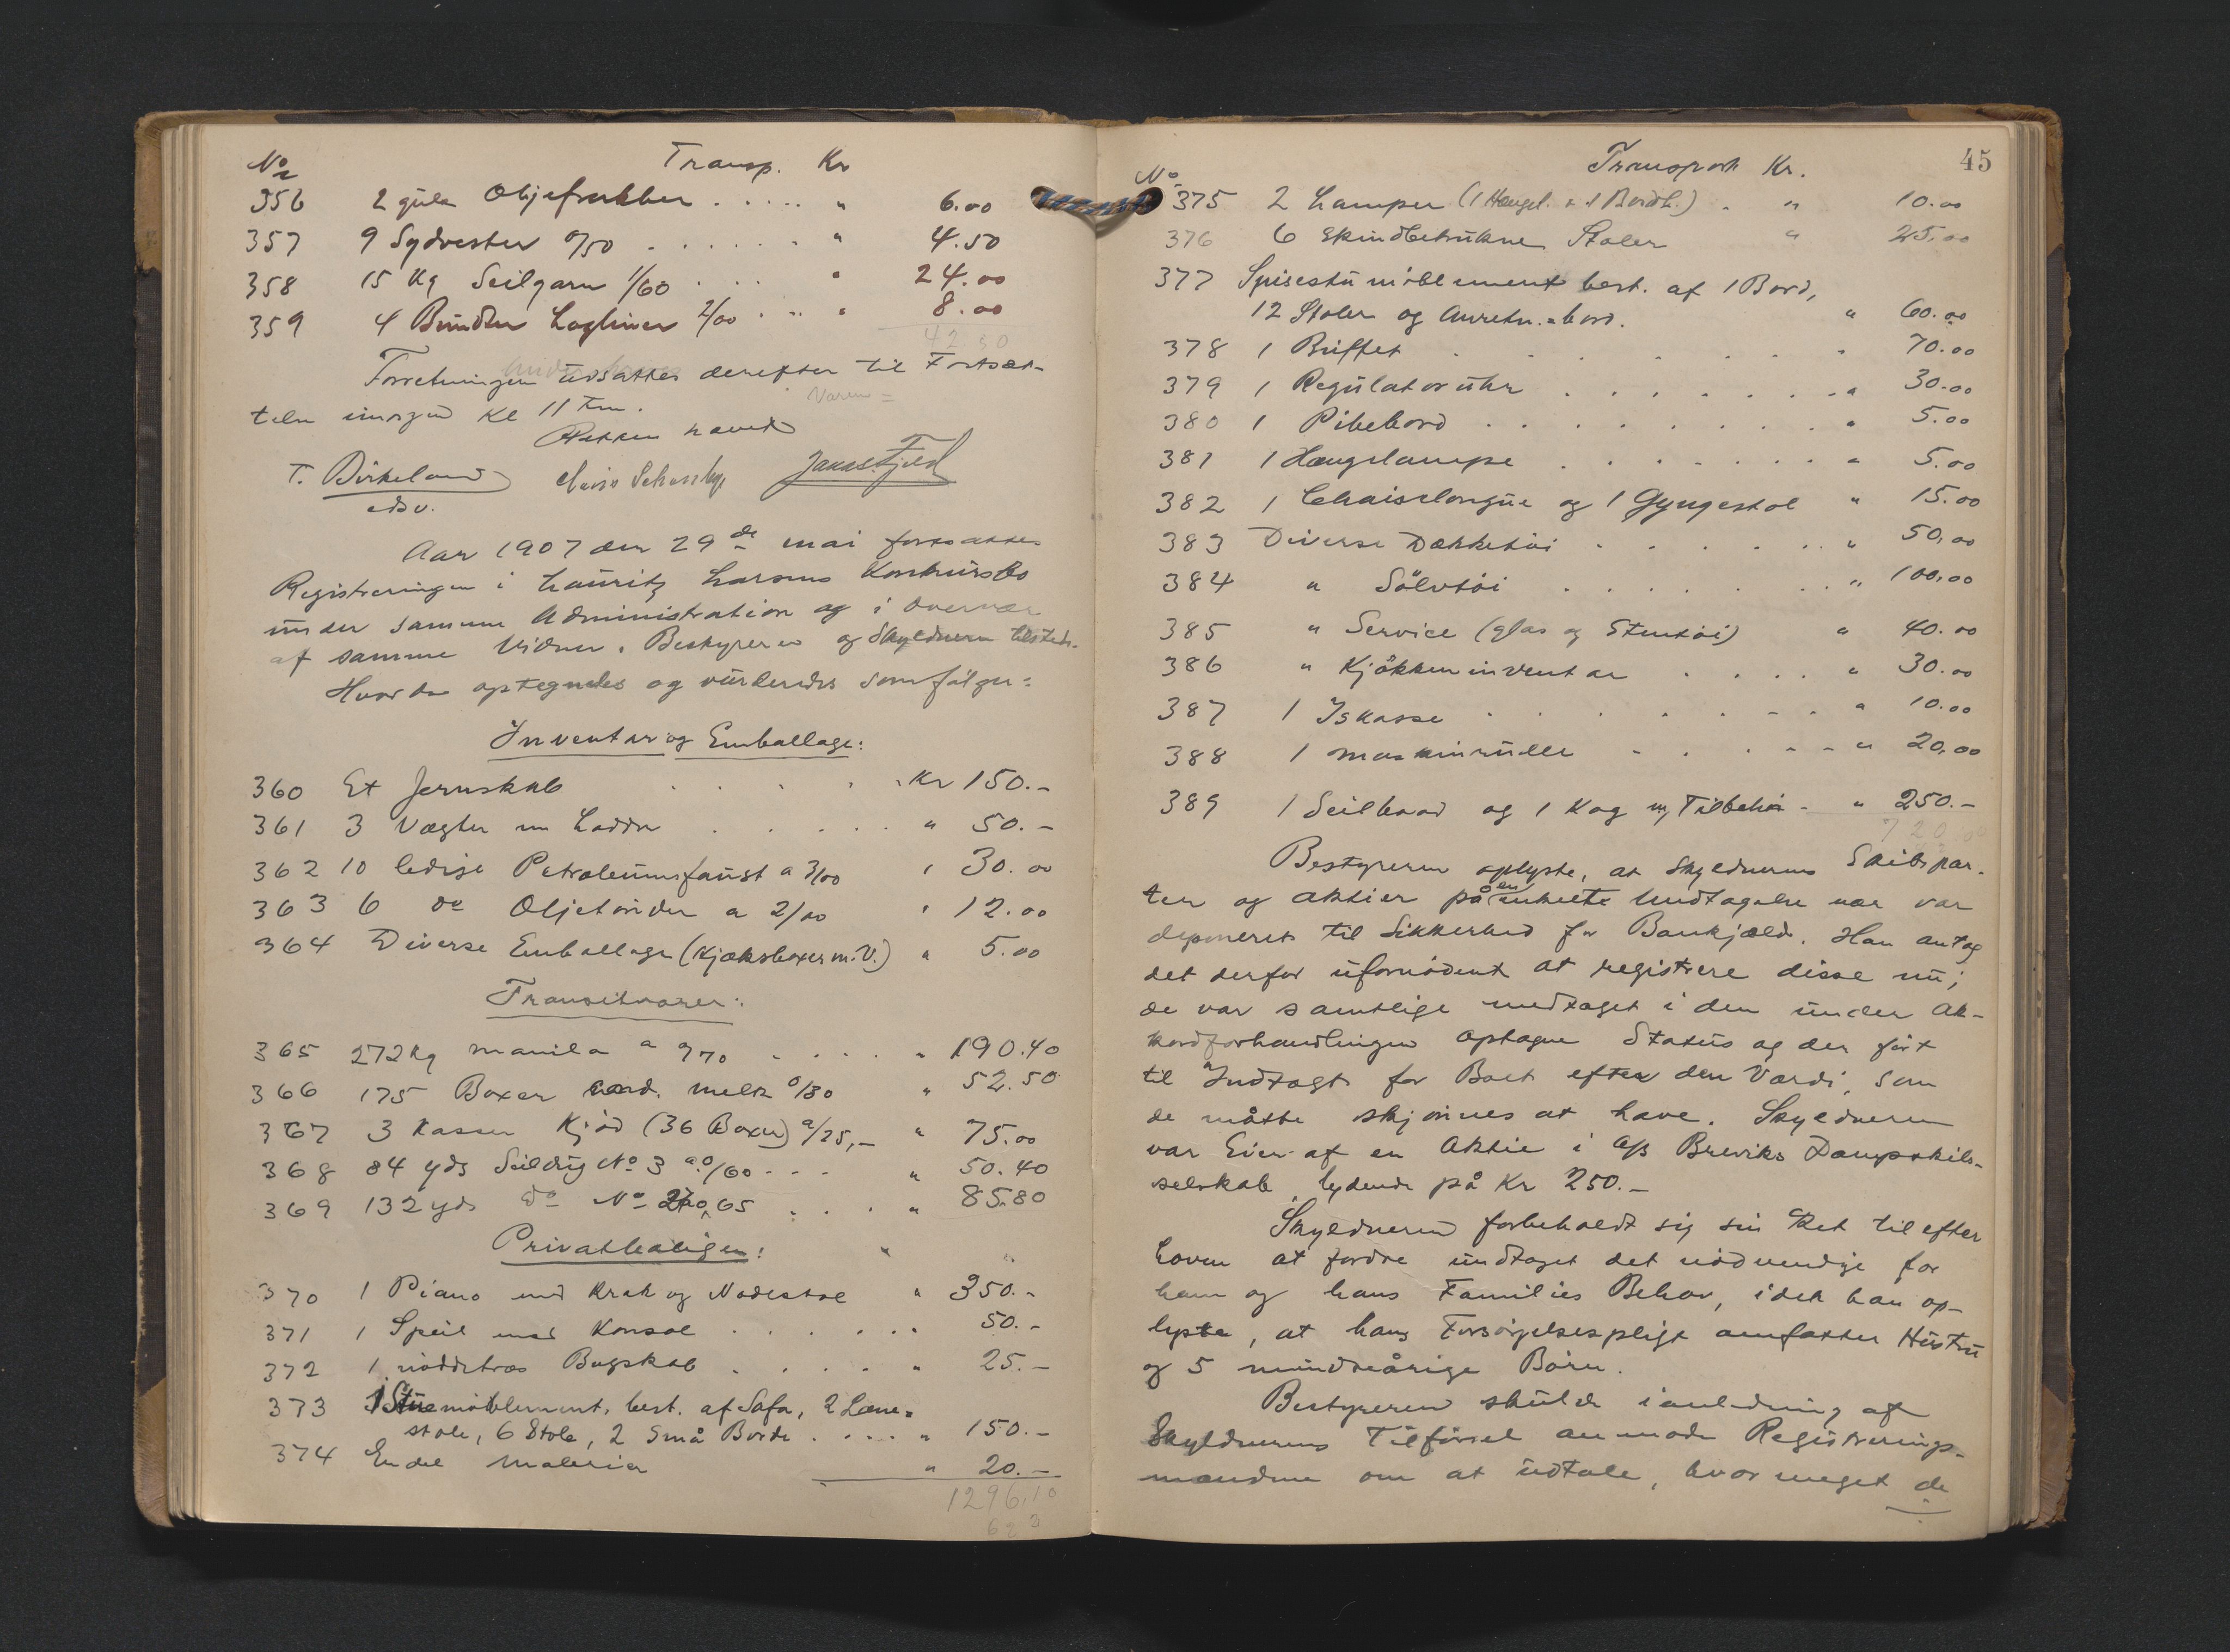 No Transp. Kr
356 2 gule Oljefrakker . . . . . " 6.00
357 9 Sydvester 0/50 . . . . . . " 4.50
358 15 Kg Seilgarn 1/60 . . . " 24.00
359 4 Bundter Logliner 2/00 . . . " 8.00
42.50
Forretningen udsattes derefter til Fortsæt-
Varer =
telse imorgen Kl 11 Fm.
Retten hævet
T. Birkeland Jakob Fjeld
edsv.
Aar 1907 den 29de mai fortsattes
Registreringen i Lauritz Larsens Konkursbo
under samme Administration og i Overvær
af samme Vidner. Bestyreren og Skyldneren tilstede.
Hvorda optegnedes og vurderedes som følger:
Inventar og Emballage:
360 Et Jernskab . . . . . Kr 150.-
361 3 Vægter m Lodder . . . . . " 50.-
362 10 ledige Petroleumsfaust a 3/00 " 30.00
363 6 do Oljetønder a 2/00 " 12.00
364 Diverse Emballage (Kjæksboxer m.V.) " 5.00
Transitvarer:
365 272 kg manila a 0/70 . . . . " 190.40
366 175 Boxer cond. melk 0/30 " 52.50
367 3 Kasser Kjød (36 Boxer) a/25,- " 75.00
368 84 yds Seildug No 3 a 0/60 . . . " 50.40
369 132 yds do No 2 0,65 . . . . " 85.80
Privatboligen:
370 1 Piano med Krak og Nodestol " 350.-
371 1 Speil med Konsol . . . . . . 50.-
372 1 nøddetræs Bogskab . . . . . " 25.-
373 1 Stuemøblement, best. af Sofa, 2 Læne=
stole, 6 Stole, 2 Små Borde . . . . " 150.-
374 En del Malerier " 20.-
1296,10
623
45
No Transport Kr.
375 2 Lamper (1 Hængel. + 1 Bordl.) . " 10.00
376 6 Skindbetrukne Stoler " 25,00
377 Spisestumøblement best. af 1 Bord,
12 Stoler og Anretn.=bord. " 60.00
378 1 Buffet . . . . . . . . 70.00
379 1 Regulatoruhr . . . . . . . " 30.00
380 1 Pibebord . . . . . . . . . " 5.00
381 1 Hængelampe . . . . . . . " 5.00
382 1 Chaiselongue og 1 Gyngestol " 15.00
383 Diverse Dækketøi . . . . . . " 50,00
384 " Sølvtøi . . . . . . . " 100,00
385 " Service (glas og Stentøi) " 40.00
386 " Kjøkkeninventar . . . . " 30.00
387 1 Iskasse . . . . . . . . " 10.00
388 1 maskinrulle . . . . . . " 20,00
389 1 Seilbaad og 1 Kag m/ Tilbehør - " 250.-
720,00
Bestyreren oplyste, at Skyldnerens Skibspar-
ter og aktier på en enkelte Undtagelse nær var
deponeret til Sikkerhed for Bankgjæld. Han antog
det derfor ufornødent at registrere disse nu;
de var samtlige medtaget i den under Ak-
kordforhandlingen optagne Status og der ført
til Indtægt for Boet efter den Værdi, som
de måtte skjønnes at have. Skyldneren
var Eier af en Aktie i A/S Breviks Dampskibs-
selskab, lydende på Kr 250.-
Skyldneren forbeholdt sig sin Ret til efter
Loven at fordre undtaget det nødvendige for
ham og hans Families Behov, idet han op-
lyste, at hans Forsørgelsespligt omfatter Hustru
og 5 mindreårige Børn.
Bestyreren skulde i anledning af
Skyldnerens Tilførsel anmode Registrerings-
mændene om at udtale, hvor meget de